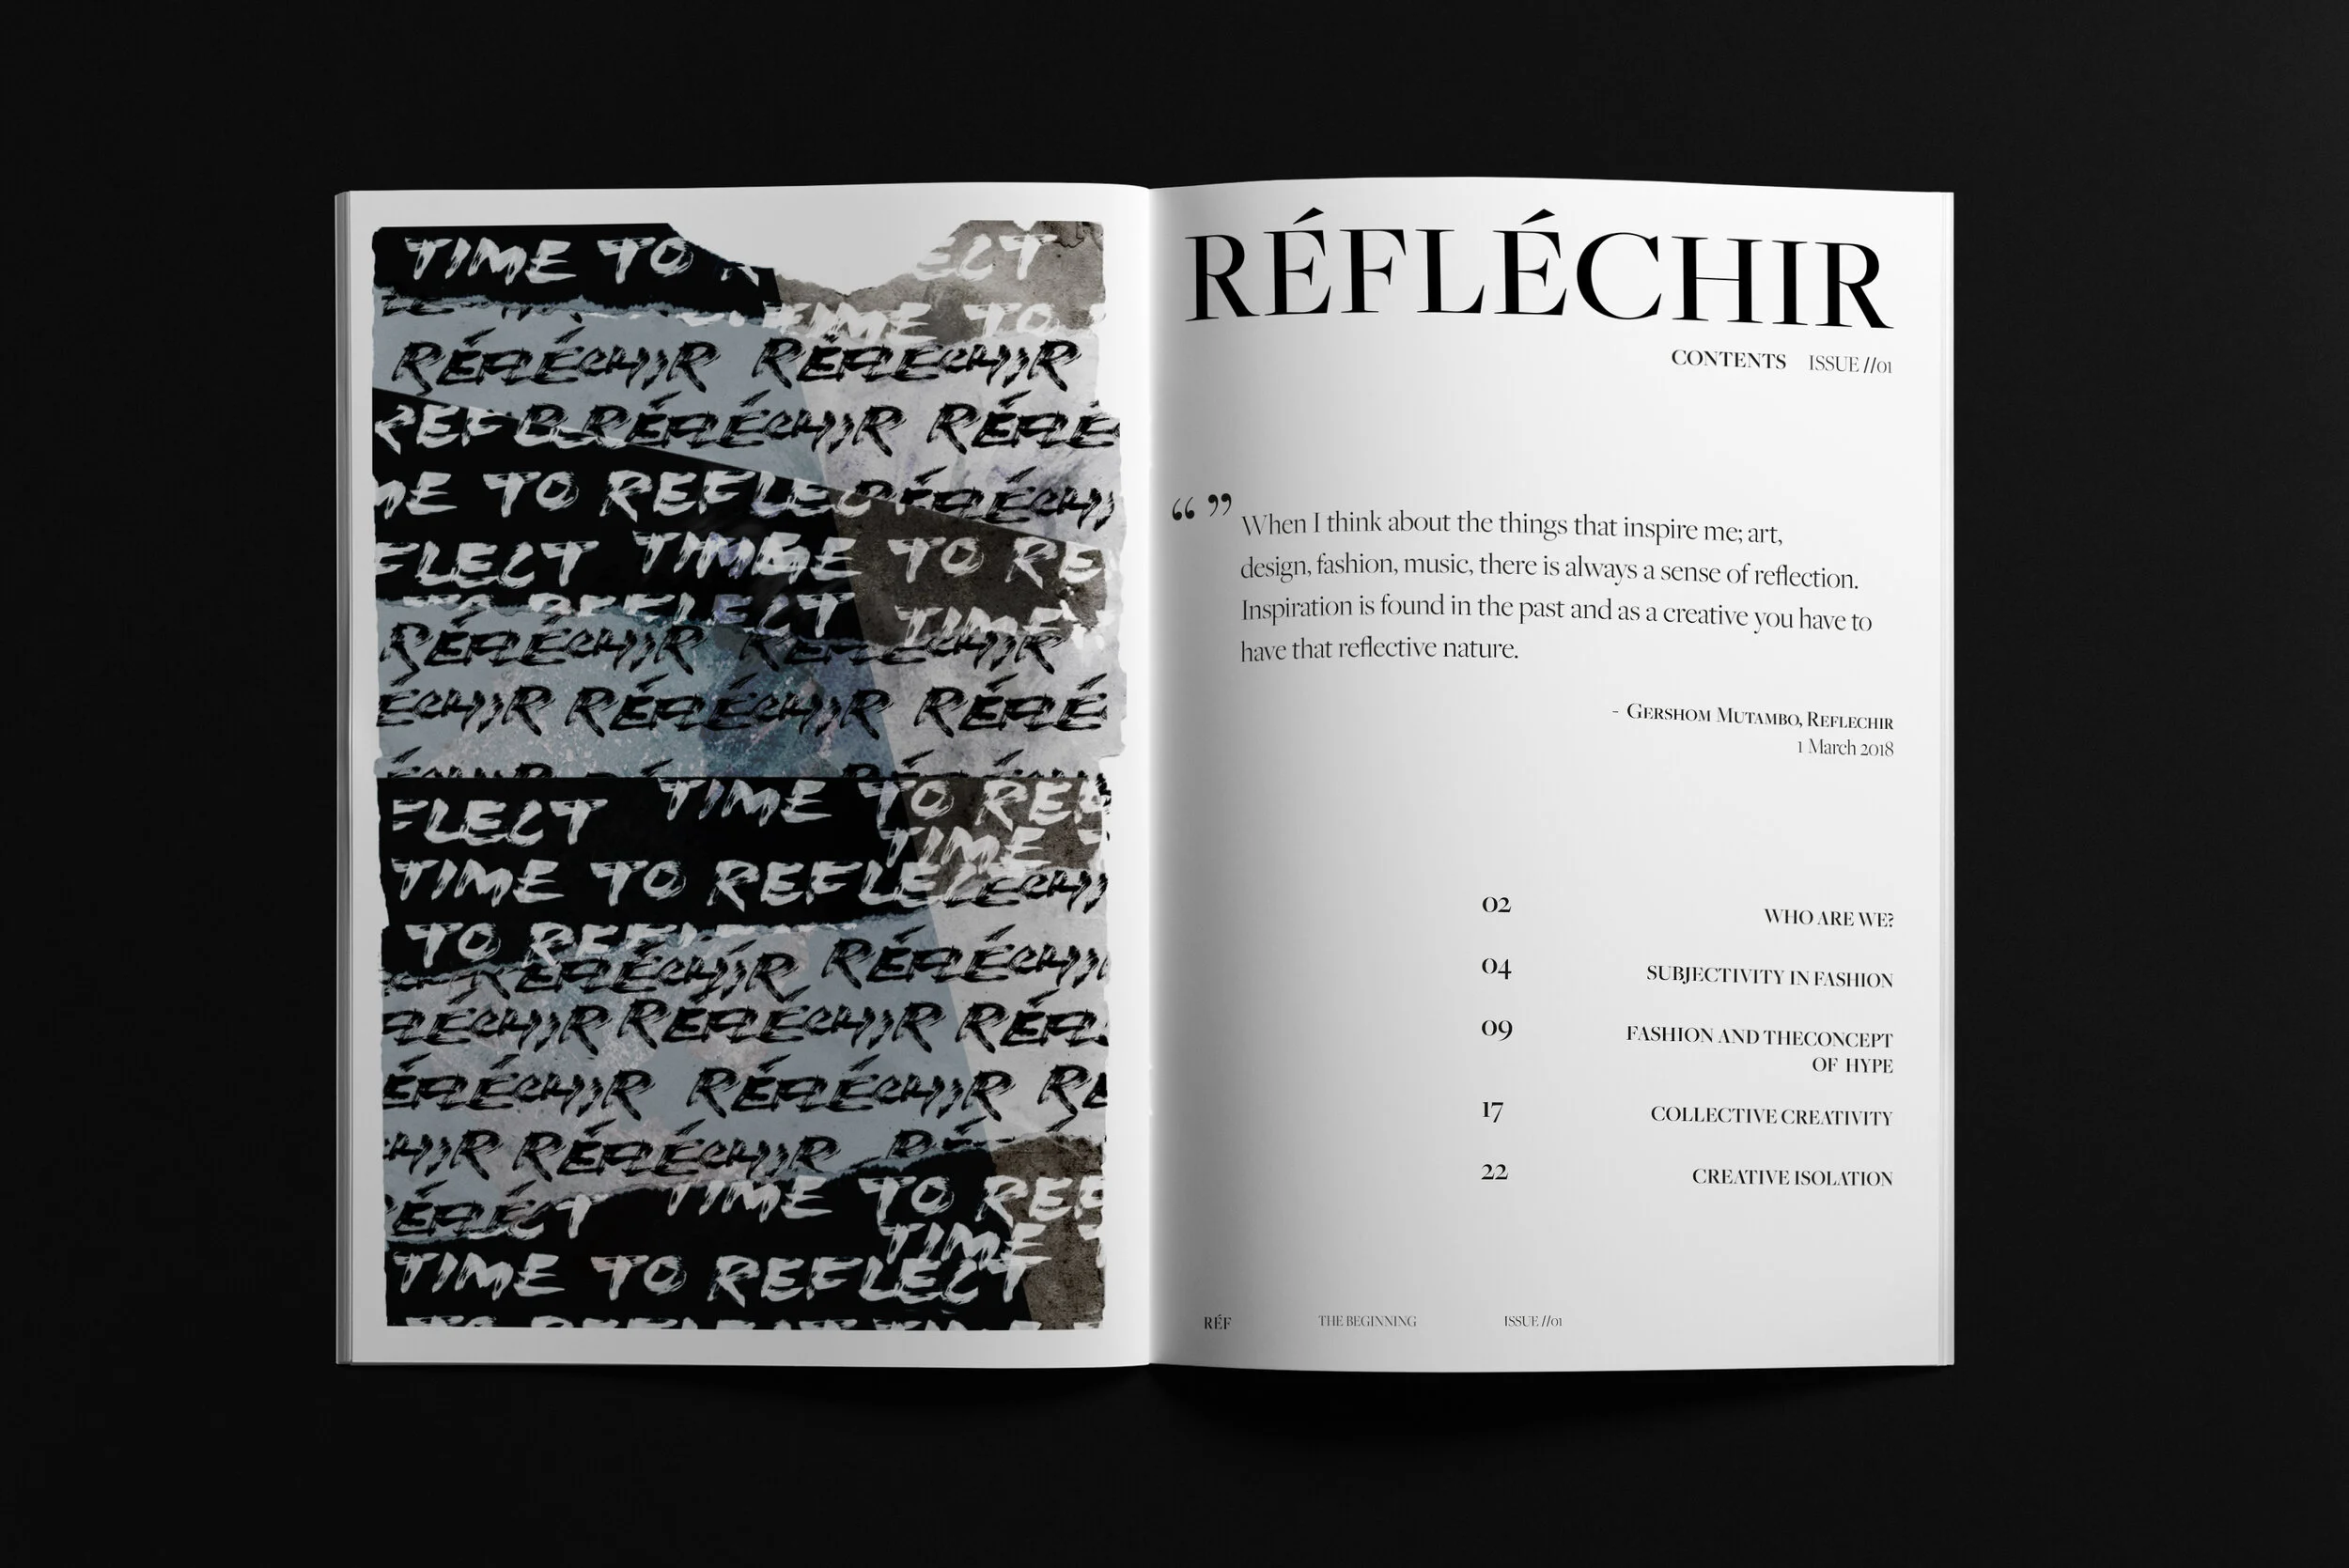 TIME TO ECT
TIME TO
RÉFLÉCHIR RÉFLÉCHIR
REF RÉFLÉCHIR RÉFLÉ
ME TO REFLEC ÉFLÉCH
FLECT TIME TO RE
TO REFLECT TIME
RÉFLÉCHIR RÉFLÉCHIR
ÉCHIR RÉFLÉCHIR RÉFLÉ
FLECT TIME TO REF
TIME T
TIME TO REFLEC ÉCHI
TO REFLE
RÉFLÉCHIR RÉFLÉCHI
FLÉCHIR RÉFLÉCHIR RÉFL
ÉFLÉCHIR RÉFLÉCHIR RÉ
CHIR RÉFLÉCHIR RÉ
RÉFLECT TIME TO REF
TIME T
TIME TO REFLECT
RÉFLÉCHIR
CONTENTS ISSUE //01
“ ” When I think about the things that inspire me; art,
design, fashion, music, there is always a sense of reflection.
Inspiration is found in the past and as a creative you have to
have that reflective nature.
- Gershom Mutambo, Reflechir
1 March 2018
02 WHO ARE WE?
04 SUBJECTIVITY IN FASHION
09 FASHION AND THECONCEPT
OF HYPE
17 COLLECTIVE CREATIVITY
22 CREATIVE ISOLATION
RÉF THE BEGINNING ISSUE //01